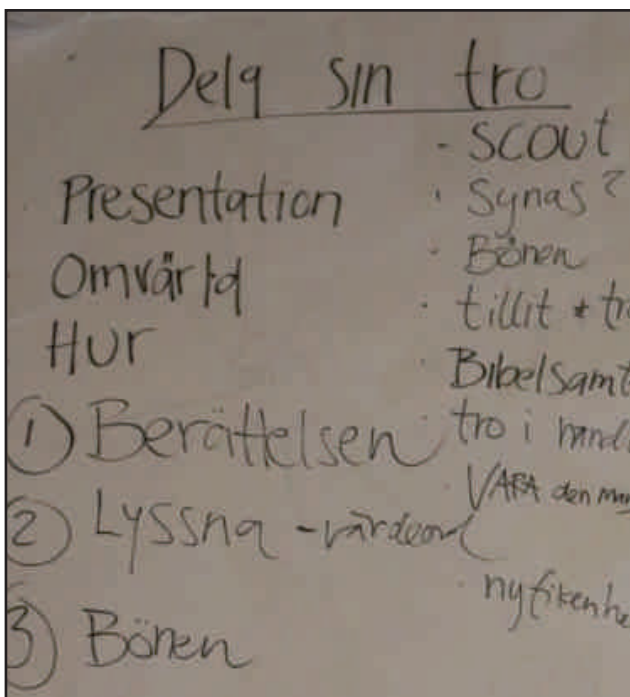 Dela sin tro
Presentation
Omvärld
Hur
① Berättelsen
② Lyssna - värdeord
③ Bönen
- SCOUT
· Synas?
· Bönen
· tillit + tr
· Bibelsamt
· tro i handl
· VARA den man
· nyfikenhe